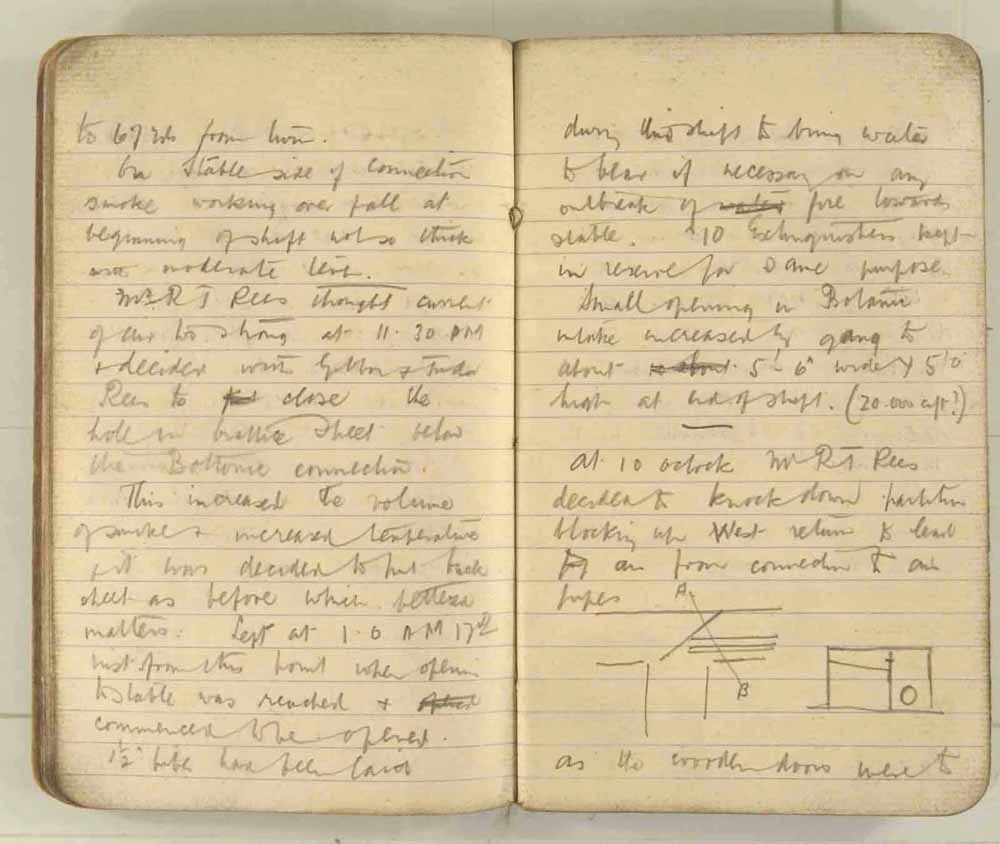 to 67 yds from turn.
On Stable side of connection
smoke working over fall at
beginning of shift not so thick
moderate temp.
Mr R T Rees thought current
of air too strong at 11.30 PM
& decided with & Tudor
Rees to close the
hole in brattice sheet below
the Bottonic connection.
This increased the volume
of smoke & increased temperature
& it was decided to put back
sheet as before which betters
matters. Left at 1.0 AM 17th
inst from this point when opening
to stable was reached &
commenced to be opened.
1½" pipes has been laid
during this shift to bring water
to bear if necessary on any
outbreak of water fire towards
stable. 10 Extinguishers kept
in reserve for same purpose.
Small opening in Botanic
intake increased by gang to
about 5' 6" wide x 5' 0
high at end of shift. (20.000 cuft?)
At 10 oclock Mr R T Rees
decided to knock down partition
blocking up West return to lead
air from connection to air
pipes
A
B
as the wooden doors were to